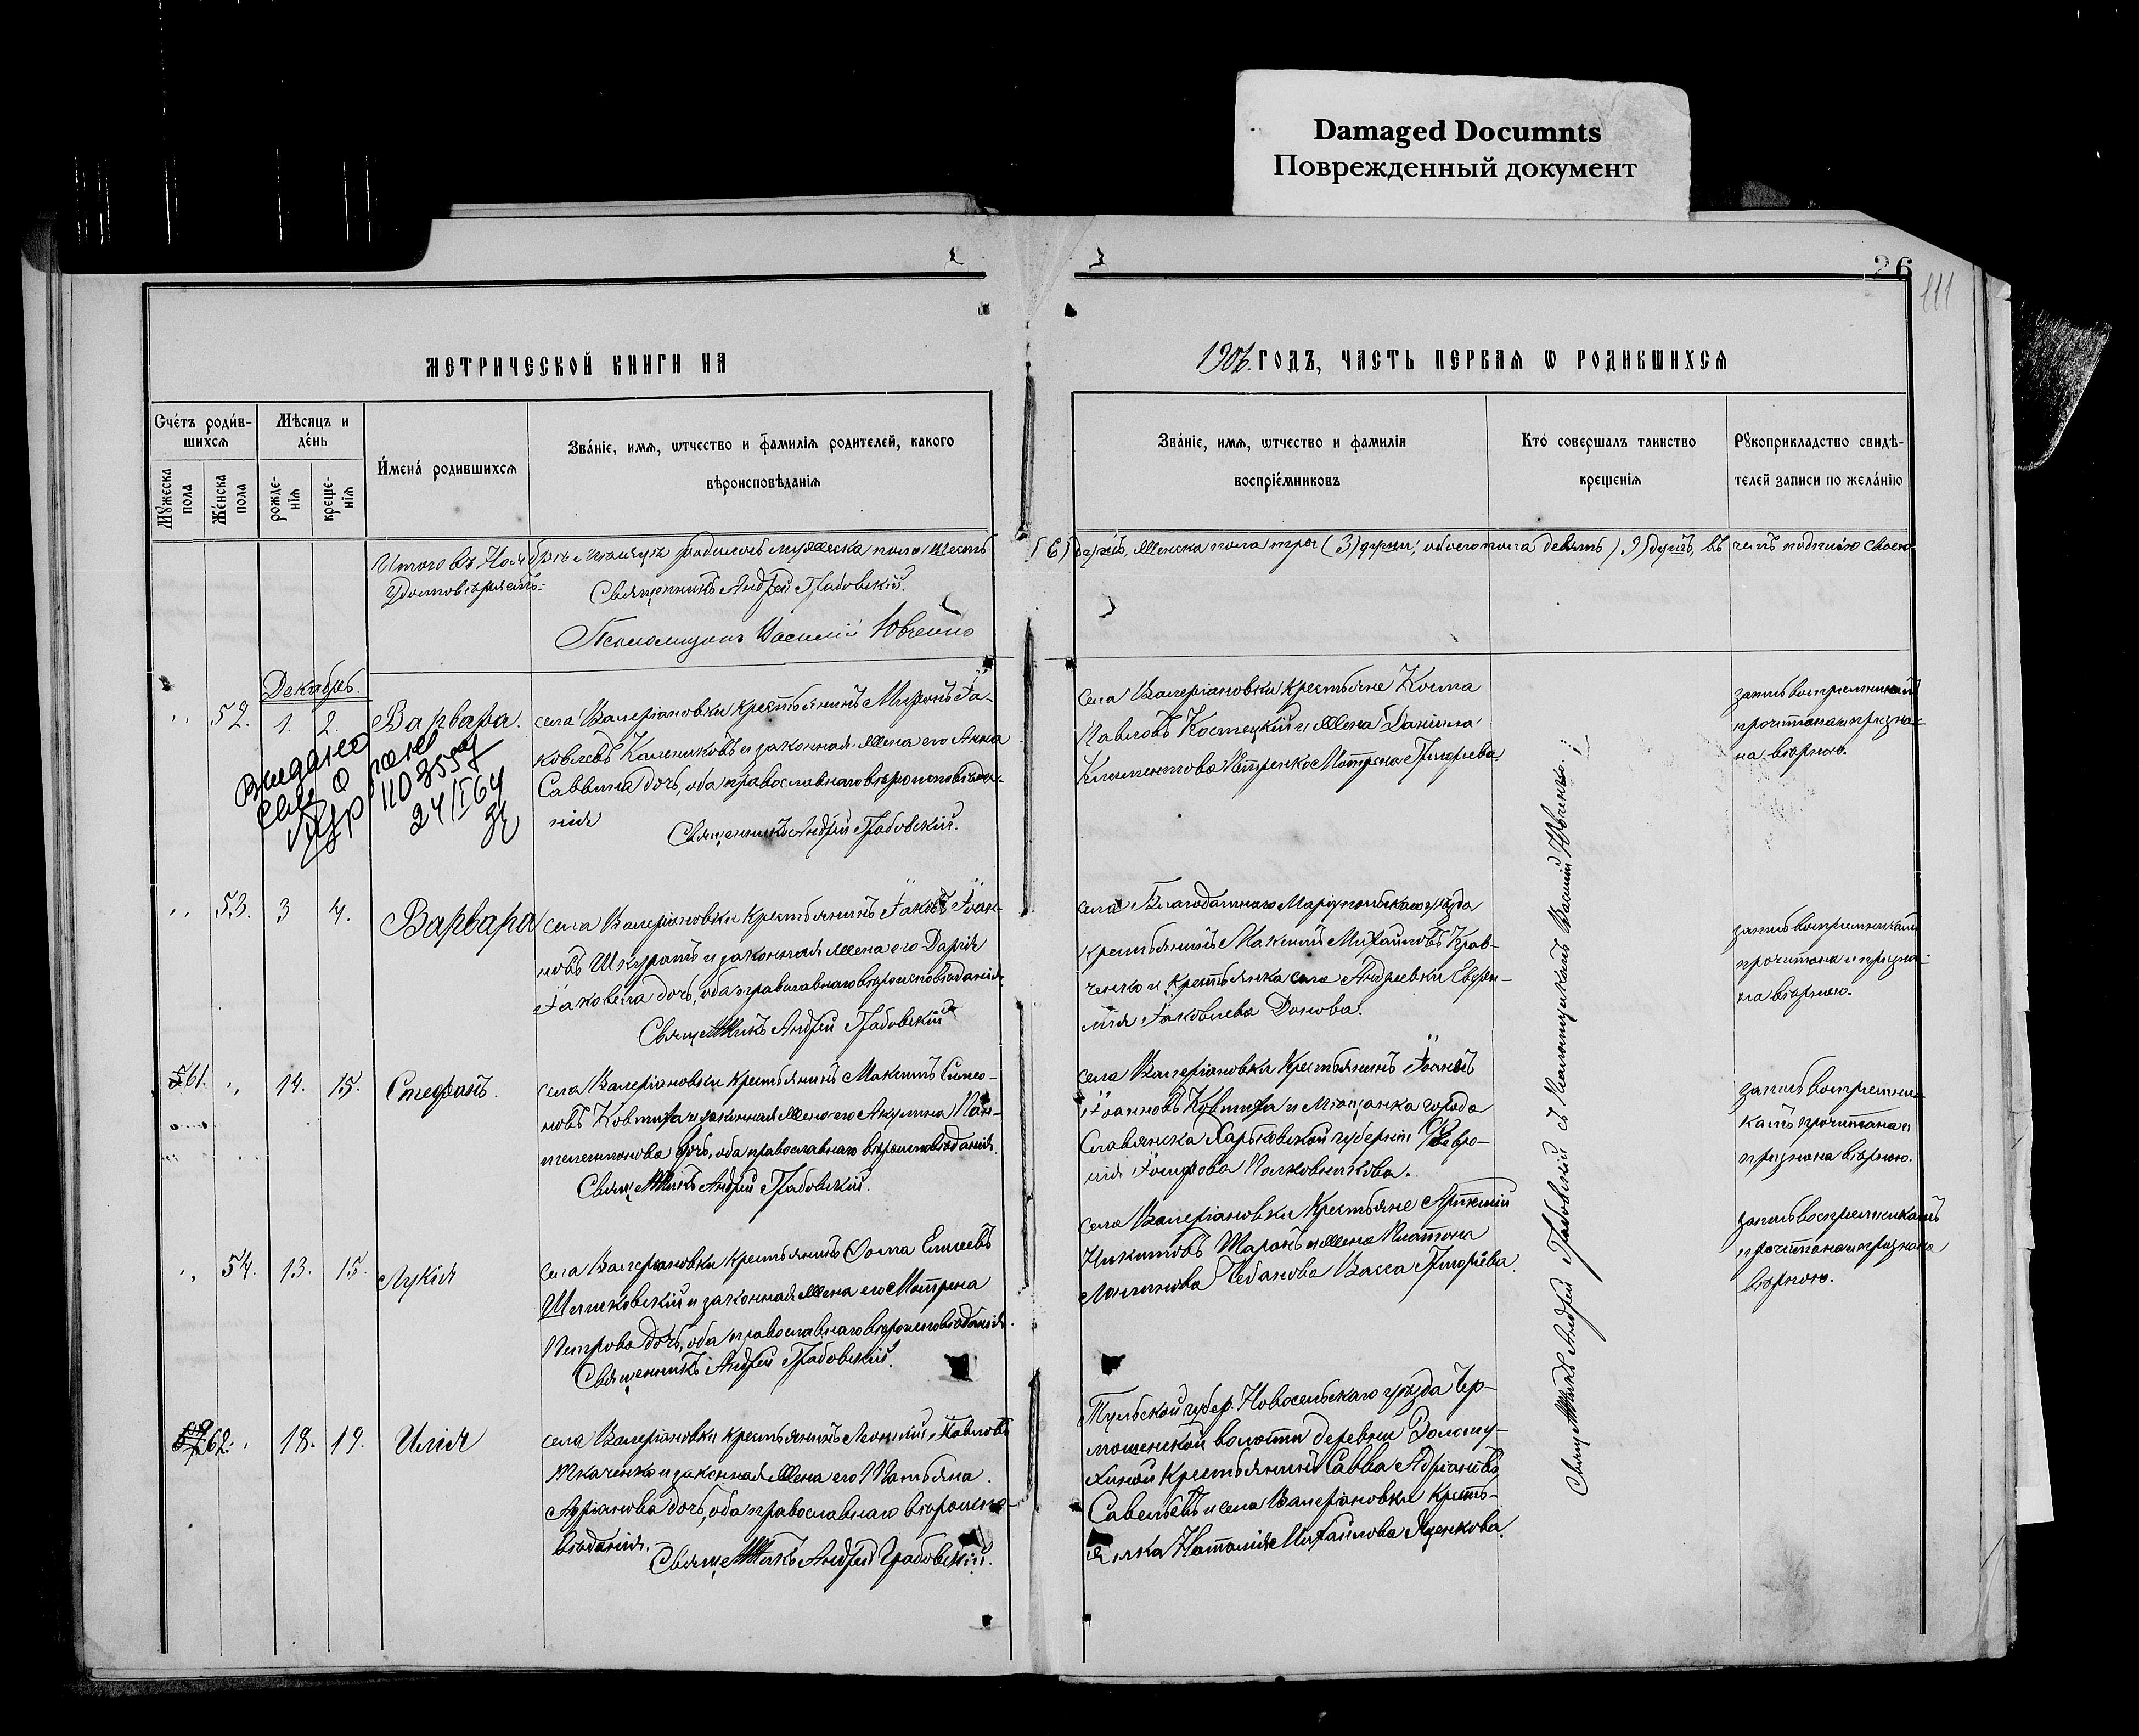 Damaged Documnts
Поврежденный документ
26
111
МЕТРИЧЕСКОЙ КНИГИ НА
1906. ГОДЪ, ЧАСТЬ ПЕРВАЯ Ѡ РОДИВШИХСЯ
Счéтъ роди́в-
шихсѧ
Мѣсяцъ и
дéнь
И́менá родившихсѧ
Звáнїе, имѧ, ѿтчество и фамилїѧ родителей, какого
вѣроисповѣданїѧ
Мꙋжеска
пола
Жéнска
пола
рожде-
нїѧ
креще-
нїѧ
Звáнїе, имѧ, ѿтчество и фамилїѧ
воспрїéмниковъ
Кто́ совершалъ таинство
крещенїѧ
Рꙋкоприкладство свидѣ-
телей записи по желáнїю
Итого въ Ноябрѣ мѣсяцѣ родилось мужеска пола шесть
(6) душъ, женска пола три (3) души; обоего пола девять (9) душъ, въ чемъ подписью своею
удостовѣряемъ:
Священникъ Андрей Грабовскій.
Псаломщикъ Василій Ювченко
Декабрь.
" 52. 1. 2. Варвара.
села Валеріановки крестьянинъ Миронъ Іа-
ковлевъ Калениковъ и законная жена его Анна
Саввина дочь, оба православнаго вѣроисповѣда-
нія
Священникъ Андрей Грабовскій.
села Валеріановки крестьяне Косма
Павловъ Костецкій и жена Даніила
Климентова Петренко Матрона Григорьева.
запись воспріемникамъ
прочитана и призна-
на вѣрною.
Выдано
110355
24/I 64
" 53. 3 4. Варвара
села Валеріановки крестьянинъ Іаковъ Іоан-
новъ Шкуратъ и законная жена его Дарія
Іаковлева дочь, оба православнаго вѣроисповѣданія.
Священникъ Андрей Грабовскій
села Благодатнаго Маріупольскаго уѣзда
крестьянинъ Максимъ Михайловъ Крав-
ченко и крестьянка села Андреевки Евфи-
мія Іаковлева Донова.
запись воспріемникамъ
прочитана и призна-
на вѣрною.
61. " 14. 15. Стефанъ.
села Валеріановки крестьянинъ Максимъ Симео-
новъ Ковтиха и законная жена его Акулина Пан-
телеимонова дочь, оба православнаго вѣроисповѣданія.
Священникъ Андрей Грабовскій.
села Валеріановки крестьянинъ Іоаннъ
Іоанновъ Ковтиха и мѣщанка города
Славянска Харьковской губерніи Февро-
нія Іосифова Полковникова.
запись воспріемни-
камъ прочитана и
признана вѣрною.
" 54. 13. 15. Лукія
села Валеріановки крестьянинъ Ѳома Елисеевъ
Шишковскій и законная жена его Матрона
Петрова дочь, оба православнаго вѣроисповѣданія.
Священникъ Андрей Грабовскій.
села Валеріановки крестьяне Артемій
Никитовъ Шаронъ и жена Платона
Логинова Чебанова Васса Григорьева.
запись воспріемникамъ
прочитана и признана
вѣрною.
62. " 18. 19. Илія
села Валеріановки крестьянинъ Леонтій Павловъ
Ткаченко и законная жена его Татьяна
Адріанова дочь, оба православнаго вѣроиспо-
вѣданія.
Священникъ Андрей Грабовскій.
Тульской губер. Новосельскаго уѣзда Чер-
мошенской волости деревни Золоту-
хиной крестьянинъ Савва Адріановъ
Савельевъ и села Валеріановки кресть-
янка Наталія Михайлова Яценкова.
Священникъ Андрей Грабовскій съ Псаломщикомъ Василій Ювченко.